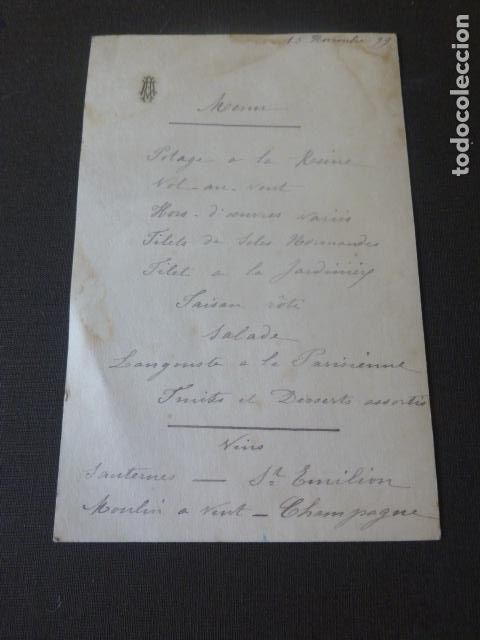 15 Novembre 99
Menu
Potage a la Reine
Vol-au-vent
Hors-d'œuvres variés
Filets de Soles Normandes
Filet a la Jardinière
Faisan rôti
Salade
Langouste a la Parisienne
Fruits et Desserts assortis
Vins
Sauternes — St Emilion
Moulin a Vent — Champagne
todocoleccion.net